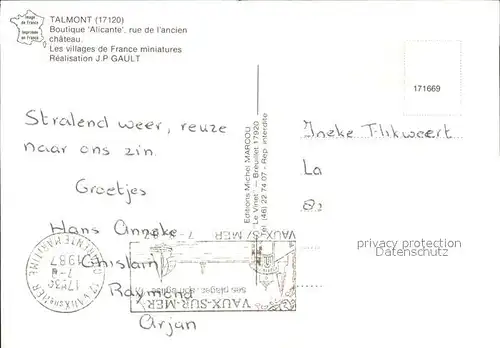 Image de France
Imprimée en France
TALMONT (17120)
Boutique 'Alicante', rue de l'ancien
château.
Les villages de France miniatures
Réalisation J.P GAULT
171669
Stralend weer, reuze
naar ons zin.
Groetjes
Hans Anneke
Ghislain
Raymond
Arjan
Editions Michel MARCOU
"Le Vinet" - Breuillet 17920
Tél (46) 22 74 07 - Rep. interdite
Ineke Flikweert
La
privacy protection
Datenschutz
17 VAUX-SUR-MER
CHARENTE MARITIME
17H30
7-8
1987
VAUX-SUR-MER
ses plages
VAUX S/ MER
7 - 8 87